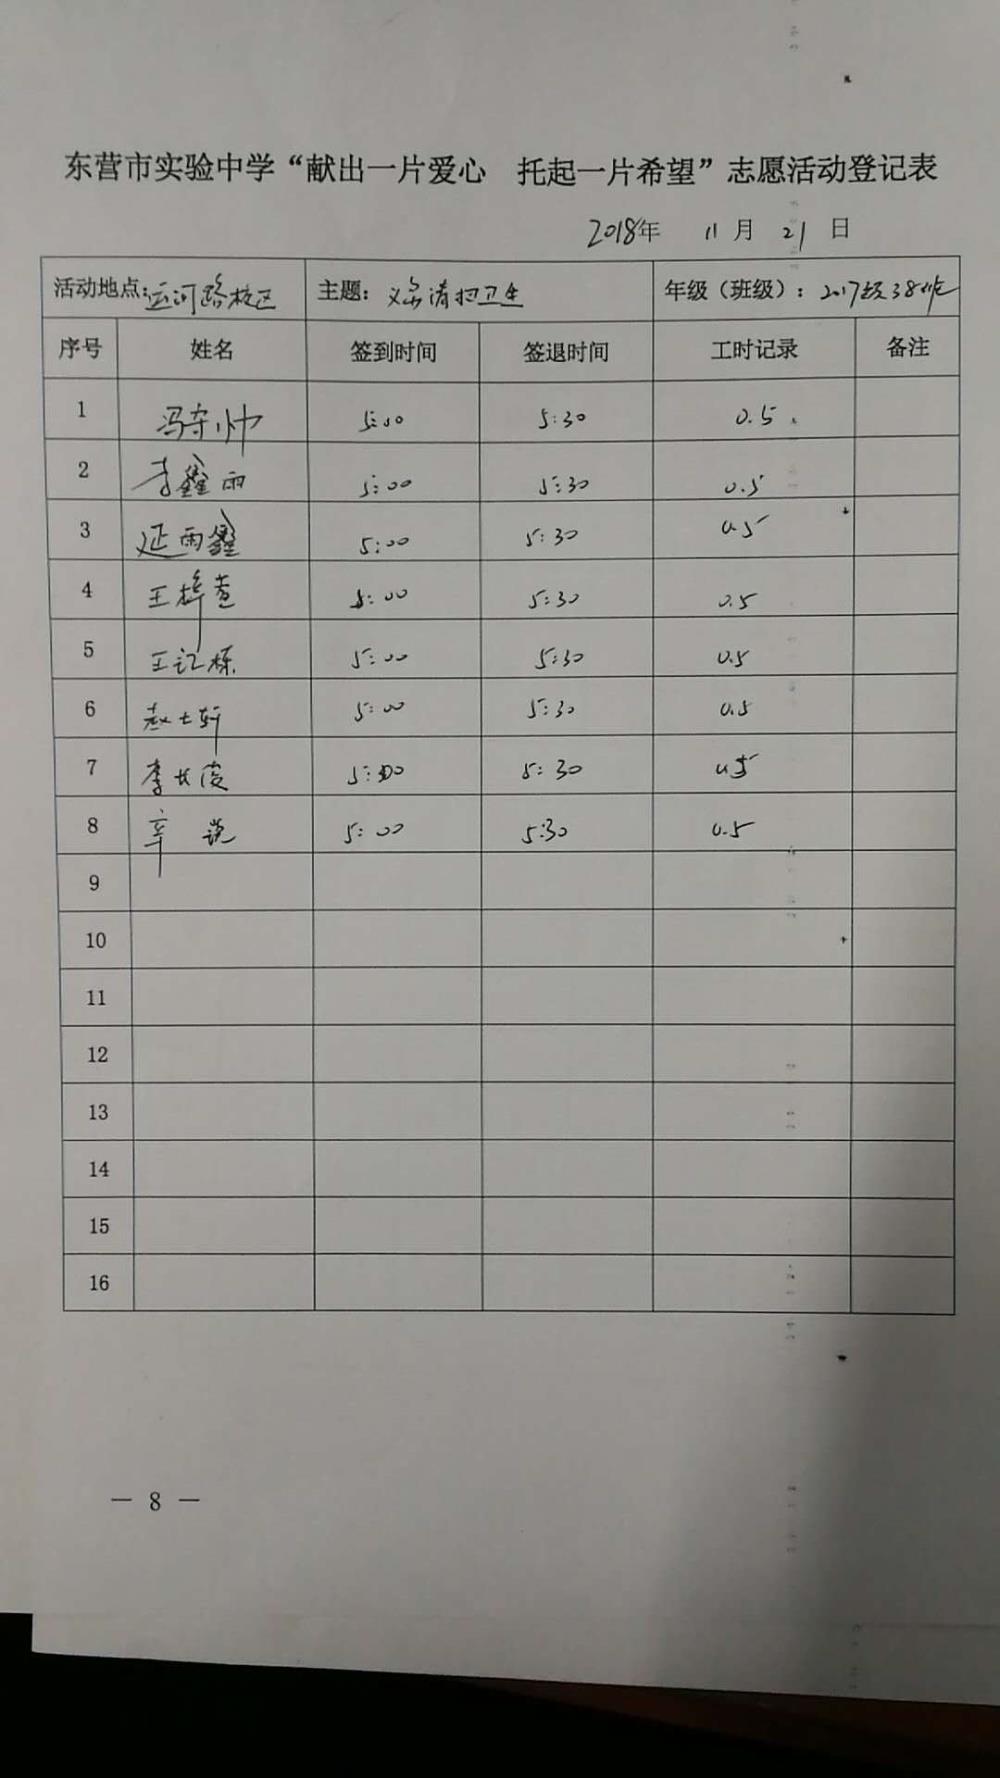 东营市实验中学“献出一片爱心 托起一片希望”志愿活动登记表
2018年 11月 21日
活动地点:运河路校区 主题:义务清扫卫生 年级（班级）:2017级38班
序号 姓名 签到时间 签退时间 工时记录 备注
1 冯守帅 5:00 5:30 0.5
2 李鑫雨 5:00 5:30 0.5
3 延雨鑫 5:00 5:30 0.5
4 王梓萱 5:00 5:30 0.5
5 王江栋 5:00 5:30 0.5
6 赵士轩 5:00 5:30 0.5
7 李长俊 5:00 5:30 0.5
8 辛 5:00 5:30 0.5
9
10
11
12
13
14
15
16
— 8 —